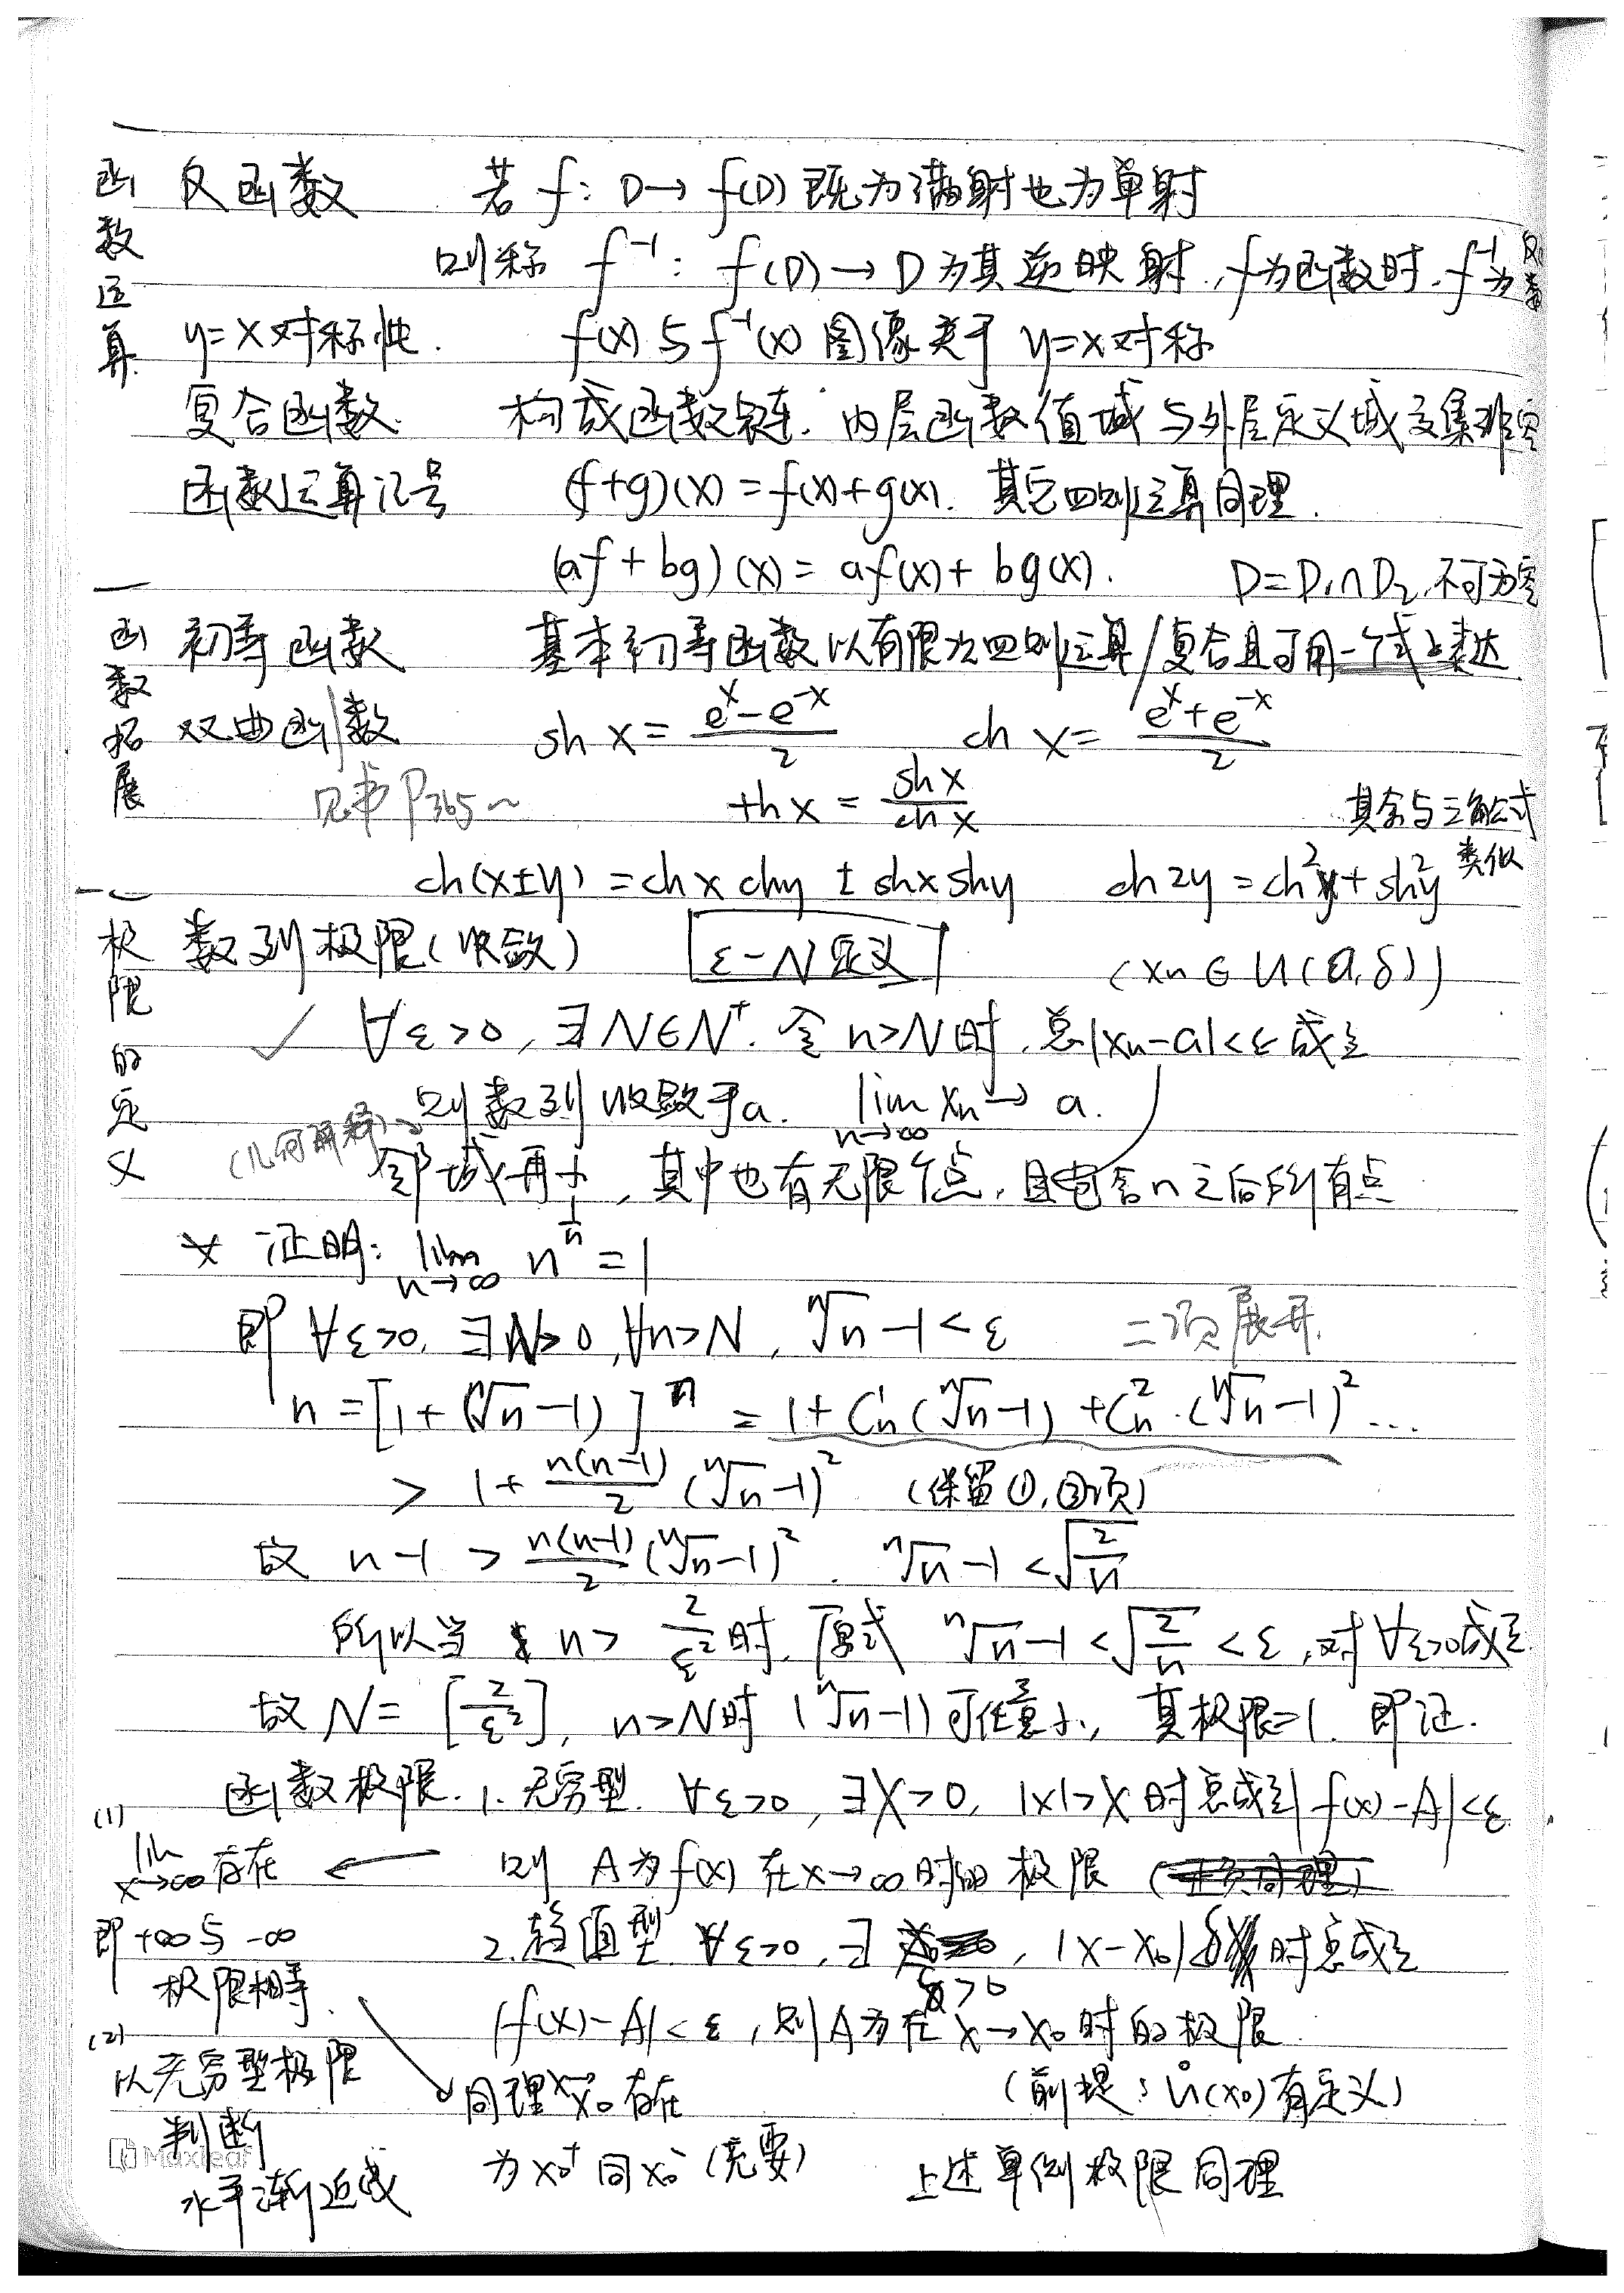 函数运算
反函数 若 f: D→f(D) 既为满射也为单射
则称 f⁻¹: f(D)→D 为其逆映射, f为函数时. f⁻¹为反函数
y=x对称性. f(x) 与 f⁻¹(x) 图像关于 y=x对称
复合函数. 构成函数链: 内层函数值域与外层定义域交集非空
函数运算记号 (f+g)(x)=f(x)+g(x). 其它四则运算同理.
(af+bg)(x)=af(x)+bg(x). D=D₁∩D₂,不可为空
函数拓展
初等函数 基本初等函数以有限次四则运算/复合且可用一个式子表达
双曲函数 sh x = (eˣ-e⁻ˣ)/2 ch x = (eˣ+e⁻ˣ)/2
见书P365~ th x = shx/chx 其余与三角公式类似
ch(x±y)=chx chy ± shx shy ch2y=ch²y+sh²y
极限的定义
数列极限(收敛) ε-N定义 (xn∈U(a,δ))
✓ ∀ε>0, ∃N∈N⁺. 令 n>N时, 总|xn-a|<ε成立
则数列收敛于a. lim n→∞ xn→a.
(几何解释) 邻域再小, 其中也有无限个点, 且包含n之后所有点
* 证明: lim n→∞ n^(1/n) =1
即 ∀ε>0, ∃N>0, ∀n>N, ⁿ√n-1<ε 二项展开.
n=[1+(ⁿ√n-1)]ⁿ = 1+C¹n(ⁿ√n-1)+C²n·(ⁿ√n-1)²...
> 1+ n(n-1)/2 (ⁿ√n-1)² (保留①,③项)
故 n-1 > n(n-1)/2 (ⁿ√n-1)². ⁿ√n-1<√(2/n)
所以当 n> 2/ε² 时, 原式 ⁿ√n-1<√(2/n)<ε, 对∀ε>0成立.
故 N=[2/ε²], n>N时 (ⁿ√n-1)可任意小, 其极限=1. 即证.
函数极限. 1. 无穷型. ∀ε>0, ∃X>0, |x|>X时总成立|f(x)-A|<ε
则 A为f(x)在x→∞时的极限 (正负同理)
(1) lim x→∞ 存在
即+∞与-∞
极限相等.
2. 趋值型 ∀ε>0, ∃ δ>0, |x-x₀| δ 时总成立
|f(x)-A|<ε, 则A为在x→x₀时的极限.
(前提: Ů(x₀)有定义)
(2)
以无穷型极限
判断
水平渐近线
同理 x→x₀ 存在
为x₀⁺同x₀⁻(充要)
上述单侧极限同理
Maxleaf